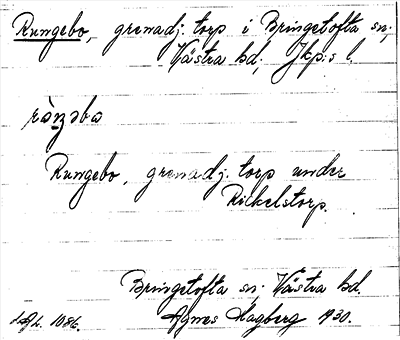 Rungebo, grenadj. torp i Bringetofta sn;
Västra hd; Jkp:s l.
rὰnzəbω
Rungebo, grenadj. torp under
Rickelstorp.
Bringetofta sn: Västra hd.
Agnes Hagberg 1930.
1086.